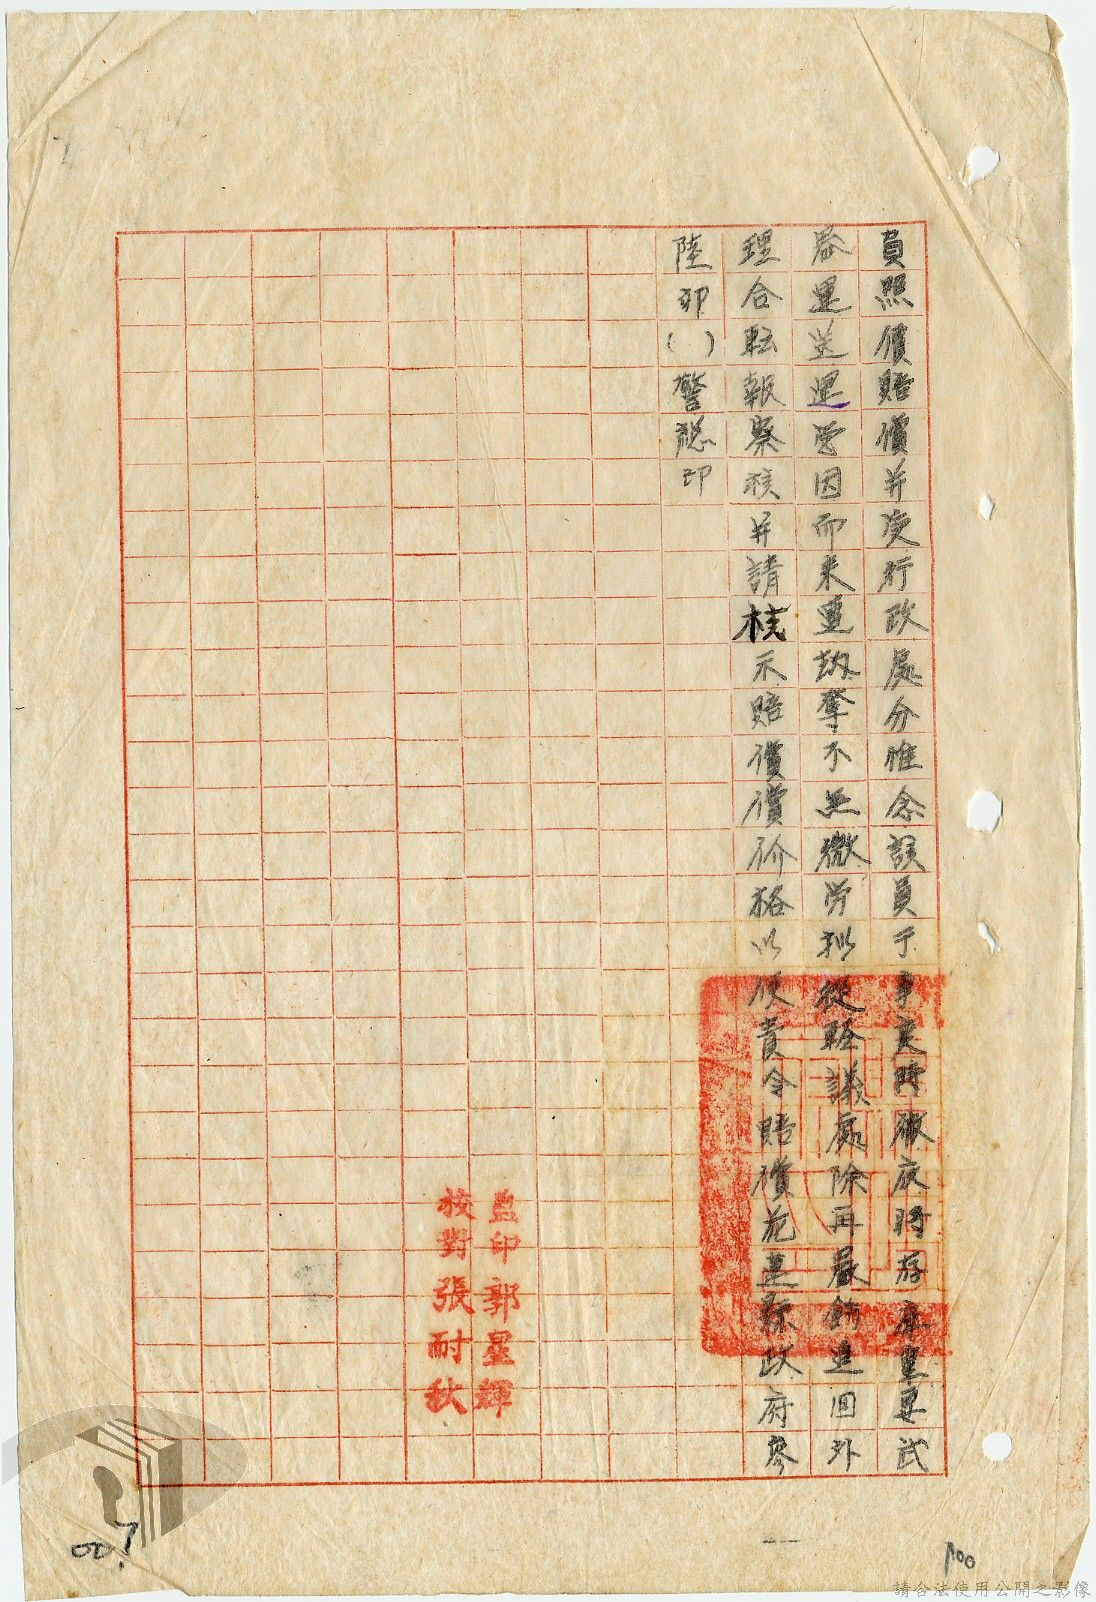 員照價賠償并受行政處分惟念該員于事変時徹夜將存庫重要武
器運送軍営因而未遭劫奪不無微労拟從軽議處除再嚴飭追回外
理合転報察核并請核示賠償價价格以便責令賠償花蓮縣政府廖
陸卯( )警總印
監印郭星輝
校對張耐秋
007
請合法使用公開之影像